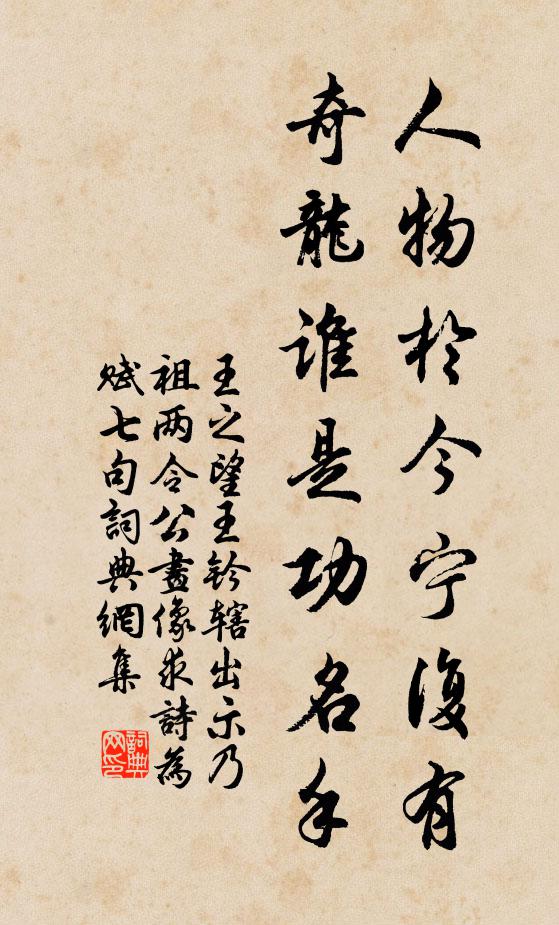 人物於今宁復有
奇龍谁是功名手
王之望王鈐辖出示乃
祖两令公畫像求詩為
赋七句詞典網集
詞典
网印